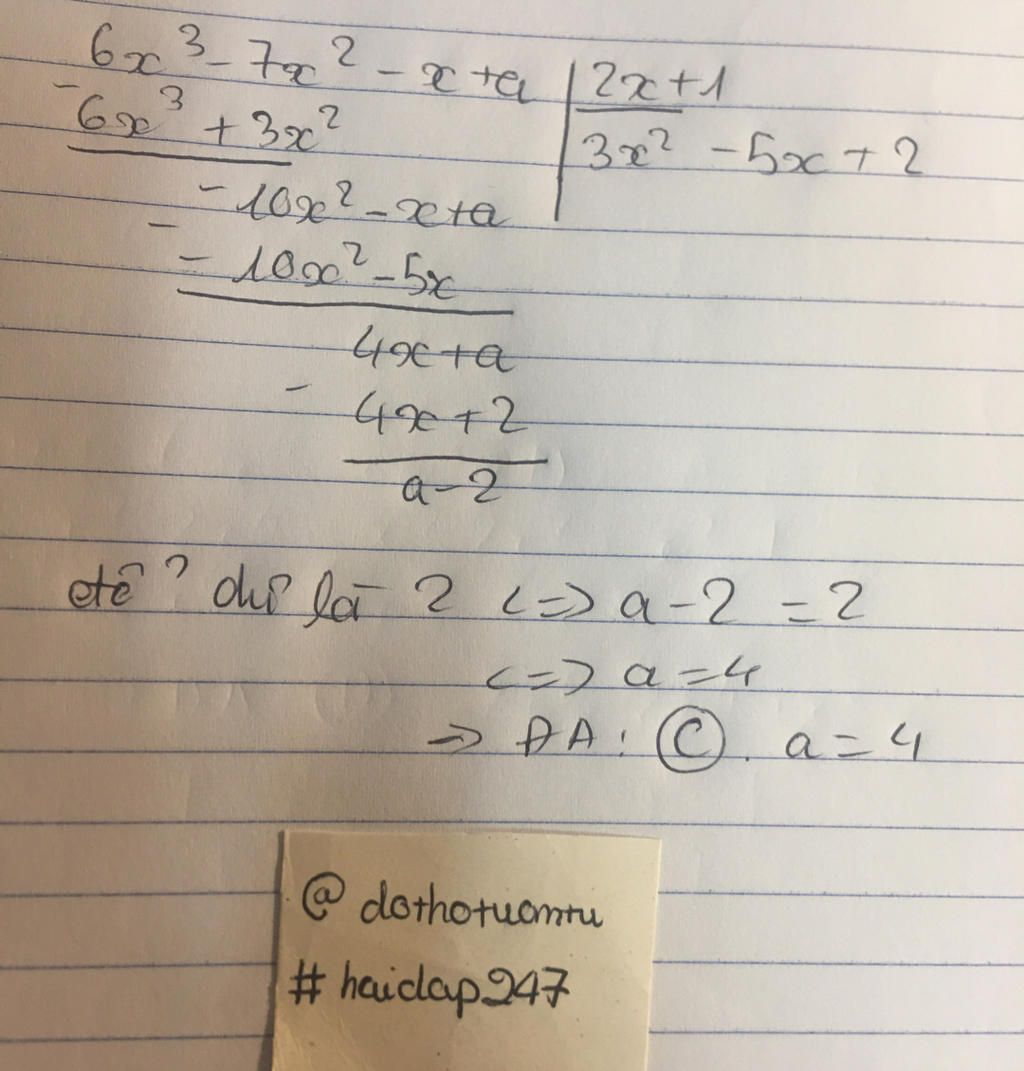 6x³ - 7x² - x + a | 2x + 1
- 6x³ + 3x² | 3x² - 5x + 2
- 10x² - x + a
- - 10x² - 5x
4x + a
- 4x + 2
a - 2
để dư là 2 <=> a - 2 = 2
<=> a = 4
=> ĐA : C . a = 4
@ dothotuontu
# haidap247